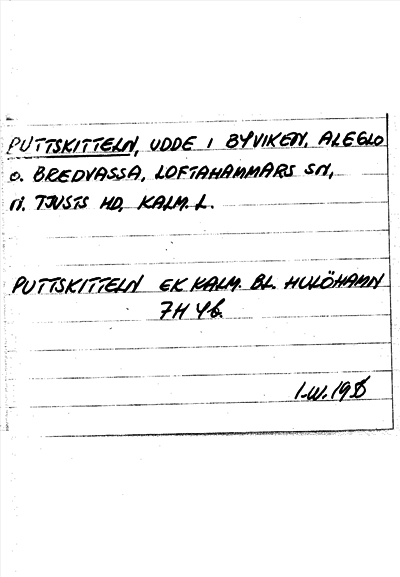 PUTTSKITTELN, UDDE I BYVIKEN, ALEGLO
O. BREDVASSA, LOFTAHAMMARS SN,
N. TJUSTS HD, KALM. L.
PUTTSKITTELN EK KALM. BL. HULÖHAMN
7H 4b.
I.W. 19